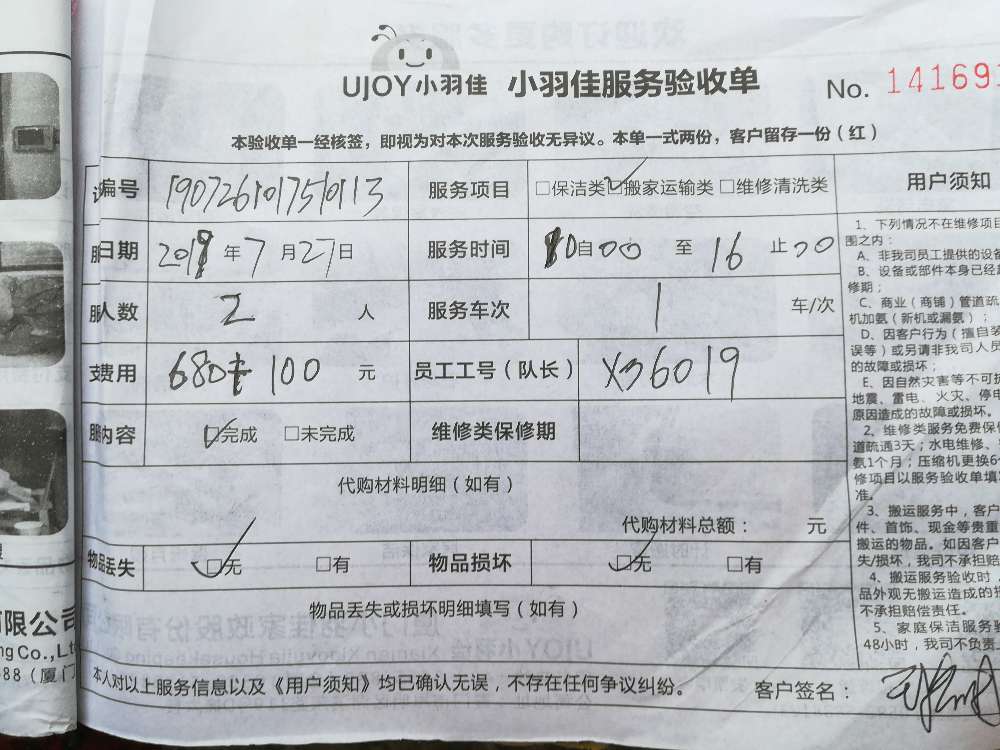 UJOY小羽佳 小羽佳服务验收单 No. 141691
本验收单一经核签，即视为对本次服务验收无异议。本单一式两份，客户留存一份（红）
编号 1907261017510113 服务项目 □保洁类 ☑搬家运输类 □维修清洗类
日期 2019年7月27日 服务时间 10自00至16止00
人数 2 人 服务车次 1 车/次
费用 680+100 元 员工工号（队长） X36019
内容 ☑完成 □未完成 维修类保修期
代购材料明细（如有）
代购材料总额： 元
物品丢失 ☑无 □有 物品损坏 ☑无 □有
物品丢失或损坏明细填写（如有）
本人对以上服务信息以及《用户须知》均已确认无误，不存在任何争议纠纷。 客户签名：
用户须知
1、下列情况不在维修项目
围之内：
A、非我司员工提供的设备
B、设备或部件本身已经
修期；
C、商业（商铺）管道疏
机加氨（新机或漏氨）；
D、因客户行为（擅自装
误等）或另请非我司人员
的故障或损坏；
E、因自然灾害等不可抗
地震、雷电、火灾、停电
原因造成的故障或损坏。
2、维修类服务免费保修
道疏通3天；水电维修、
氨1个月；压缩机更换6个
修项目以服务验收单填写
准。
3、搬运服务中，客户
件、首饰、现金等贵重
搬运的物品。如因客户
失/损坏，我司不承担赔
4、搬运服务验收时，
品外观无搬运造成的损
不承担赔偿责任。
5、家庭保洁服务验
48小时，我司不负责
有限公司
ng Co.,Lt
88（厦门